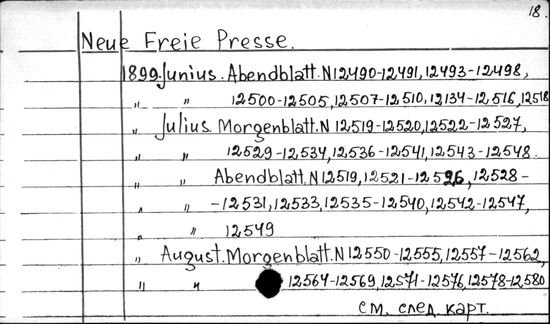 18.
Neue Freie Presse.
1899. Junius. Abendblatt. N 12490-12491, 12493-12498,
" " 12500-12505, 12507-12510, 12134-12516, 12518
" Julius. Morgenblatt. N 12519-12520, 12522-12527,
" " 12529-12534, 12536-12541, 12543-12548.
" " Abendblatt. N 12519, 12521-12526, 12528-
" " -12531, 12533, 12535-12540, 12542-12547,
" " 12549
" August. Morgenblatt. N 12550-12555, 12557-12562,
" " 12564-12569, 12571-12576, 12578-12580
см. след. карт.